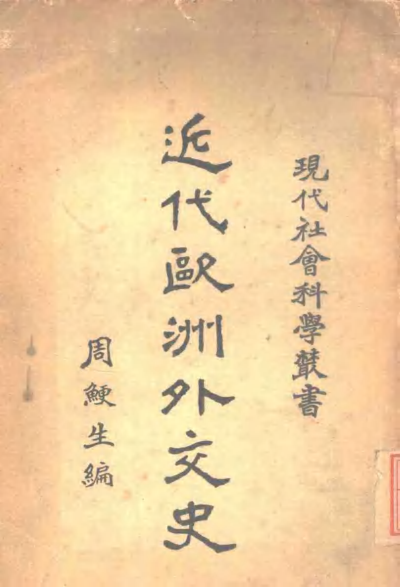 現代社會科學叢書
近代歐洲外交史
周鯁生編